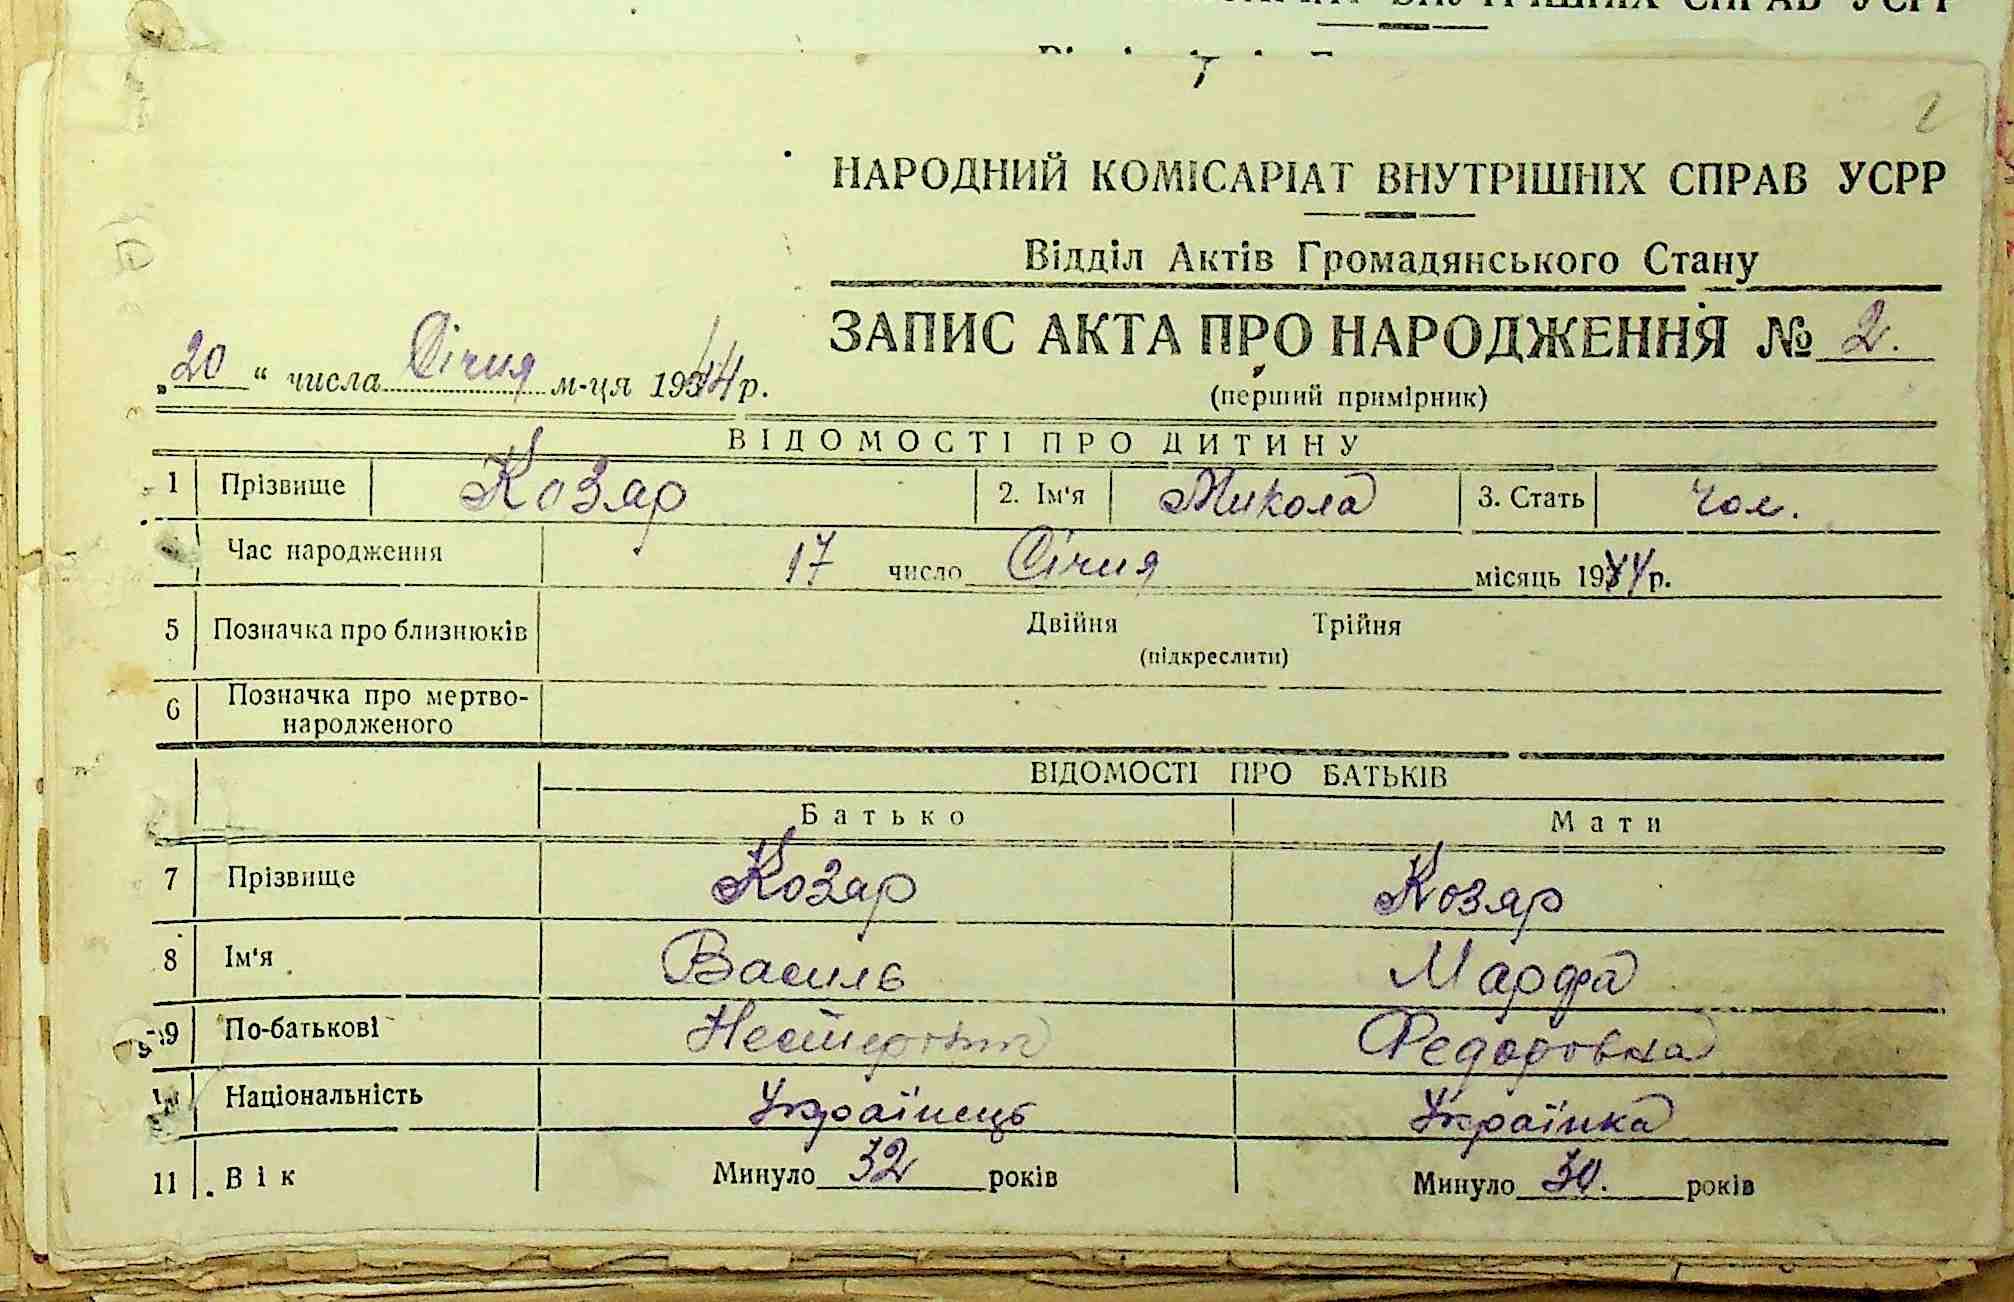 СПРАВ УСРР
НАРОДНИЙ КОМІСАРІАТ ВНУТРІШНІХ СПРАВ УСРР
Відділ Актів Громадянського Стану
ЗАПИС АКТА ПРО НАРОДЖЕННЯ № 2.
„20“ числа Січня м-ця 1944 р.
(перший примірник)
ВІДОМОСТІ ПРО ДИТИНУ
1 Прізвище Козяр 2. Ім'я Микола 3. Стать чол.
Час народження 17 число Січня місяць 1944 р.
5 Позначка про близнюків Двійня Трійня
(підкреслити)
6 Позначка про мертво-
народженого
ВІДОМОСТІ ПРО БАТЬКІВ
Батько Мати
7 Прізвище Козяр Козяр
8 Ім'я Василь Марфа
9 По-батькові Федоровна
Національність Українець Українка
11 Вік Минуло 32 років Минуло 30. років